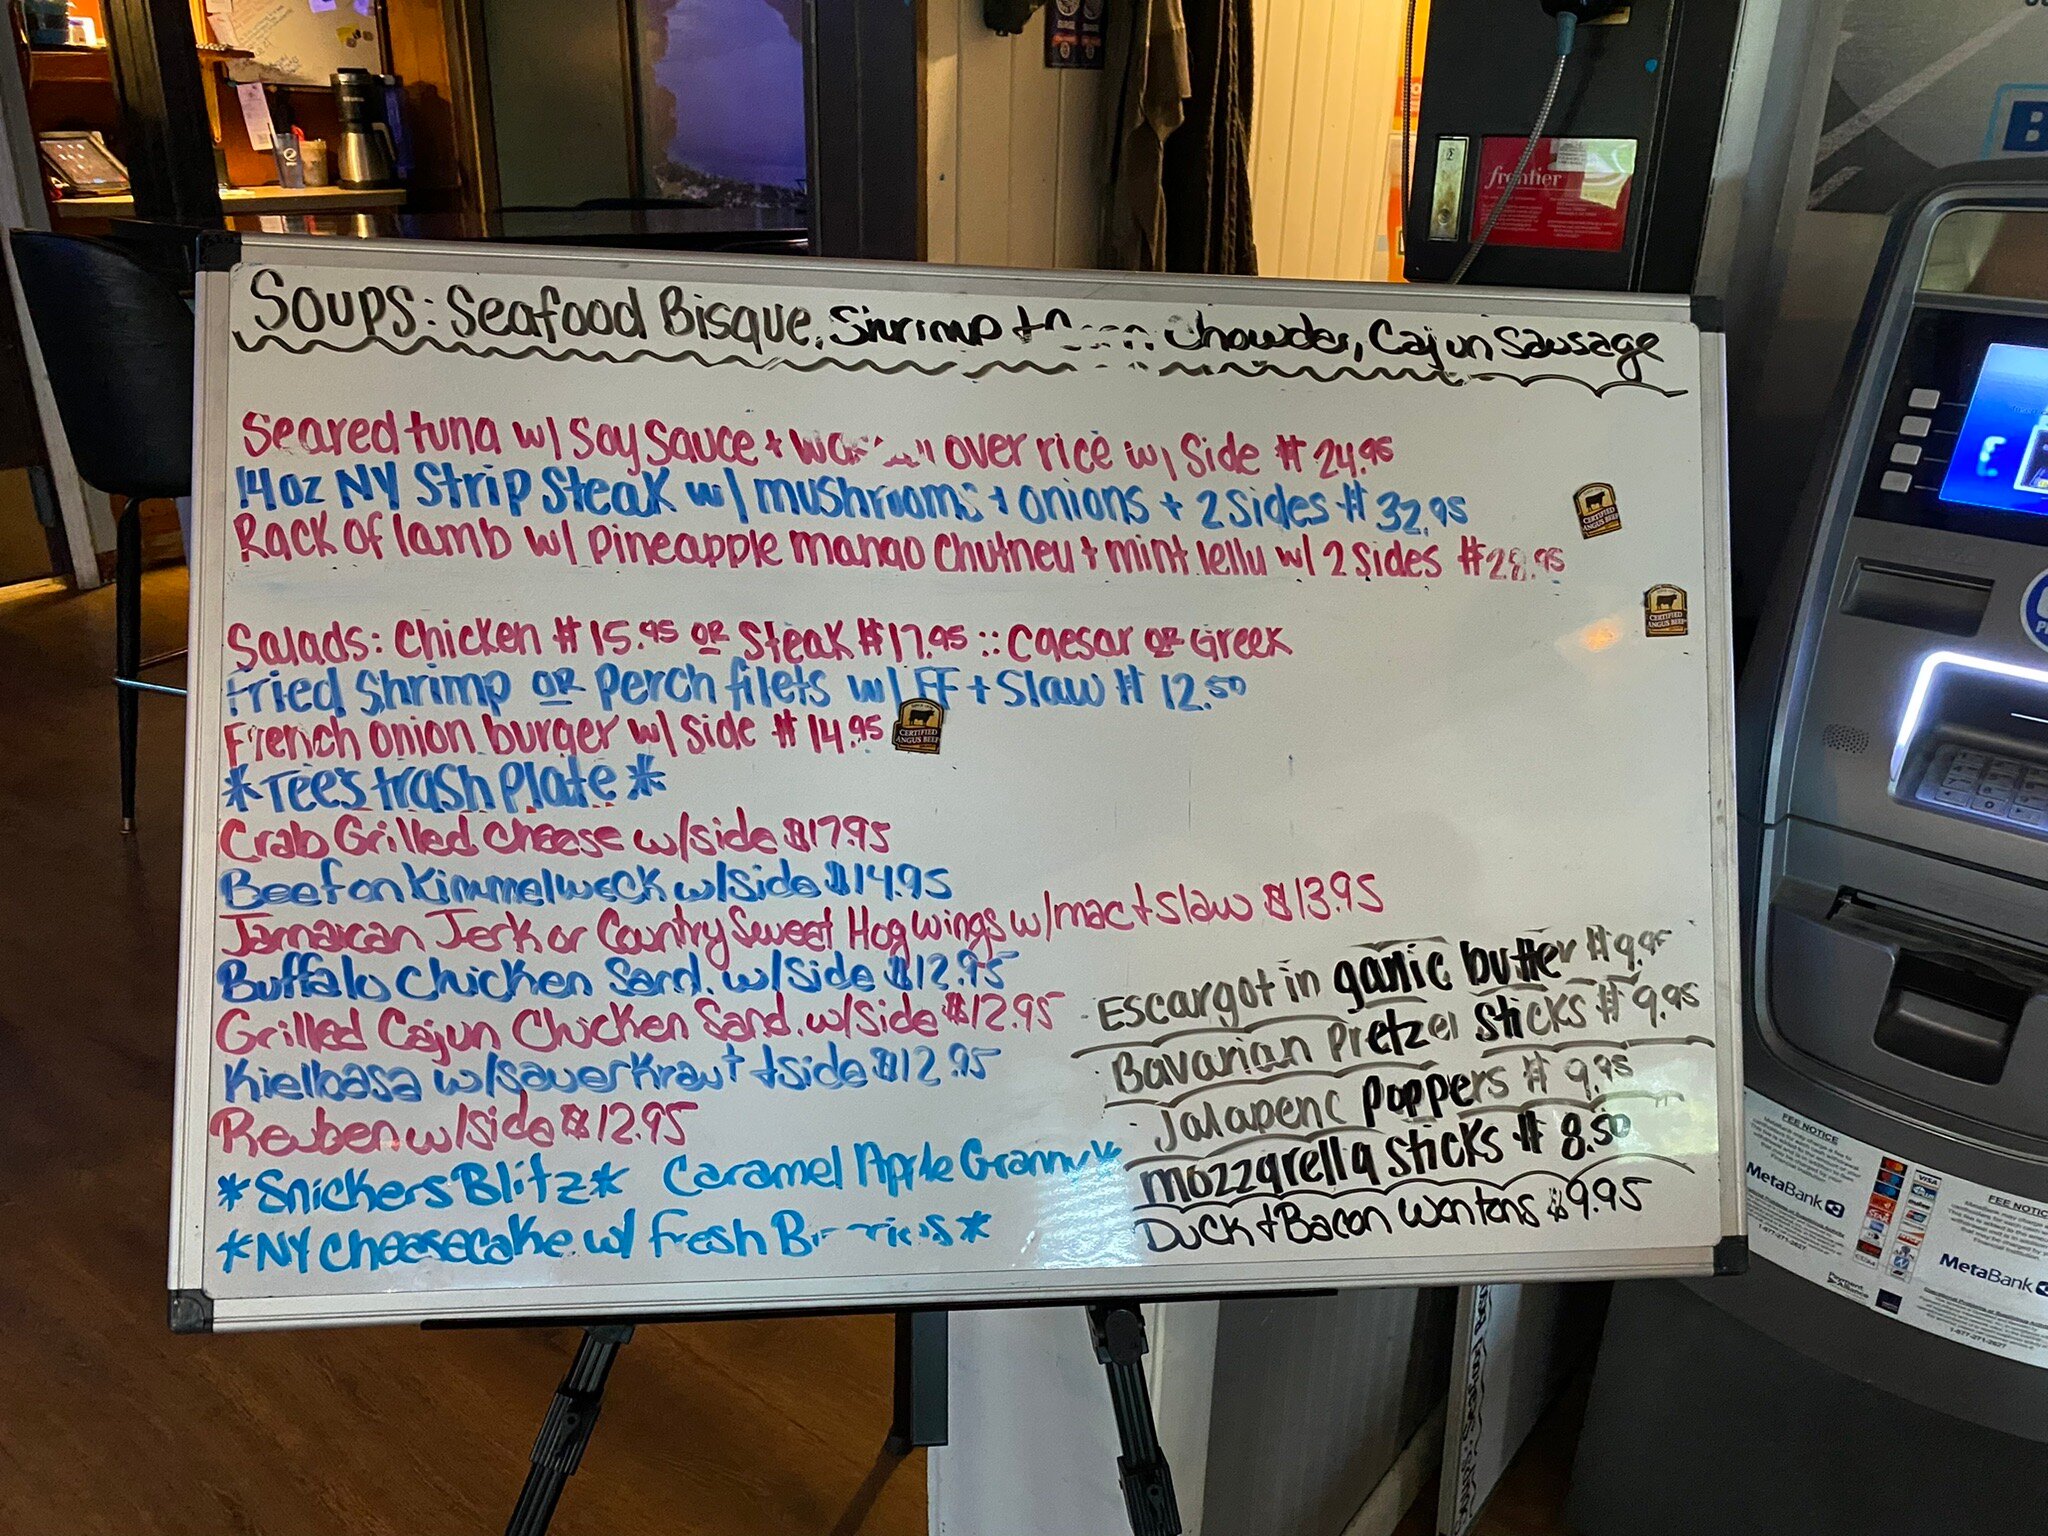 Soups: Seafood Bisque, Shrimp + Chowder, Cajun Sausage
Seared tuna w/ Soy Sauce + over rice w/ Side $24.95
14oz NY Strip Steak w/ mushrooms + onions + 2 Sides $32.95
Rack of lamb w/ pineapple mango chutney + mint jelly w/ 2 Sides $28.95
Salads: Chicken $15.95 or Steak $17.95 :: Caesar or Greek
Fried Shrimp or Perch filets w/ FF + Slaw $12.50
French onion burger w/ side $14.95
*Tee's trash Plate*
Crab Grilled Cheese w/side $17.95
Beef on Kimmelweck w/side $14.95
Jamaican Jerk or Country Sweet Hog wings w/mac + Slaw $13.95
Buffalo Chicken Sand. w/Side $12.95
Grilled Cajun Chicken Sand. w/Side $12.95
Kielbasa w/sauerkraut + side $12.95
Reuben w/side $12.95
*Snickers Blitz* Caramel Apple Granny*
*NY cheesecake w/ fresh Berries*
Escargot in garlic butter $9.95
Bavarian Pretzel sticks $9.95
Jalapeno poppers $9.95
mozzarella sticks $8.50
Duck + Bacon wontons $9.95
CERTIFIED
ANGUS BEEF
CERTIFIED
ANGUS BEEF
CERTIFIED
ANGUS BEEF
frontier
FEE NOTICE
MetaBank
1-877-271-2627
VISA
FEE NOTICE
MetaBank
1-877-271-2627